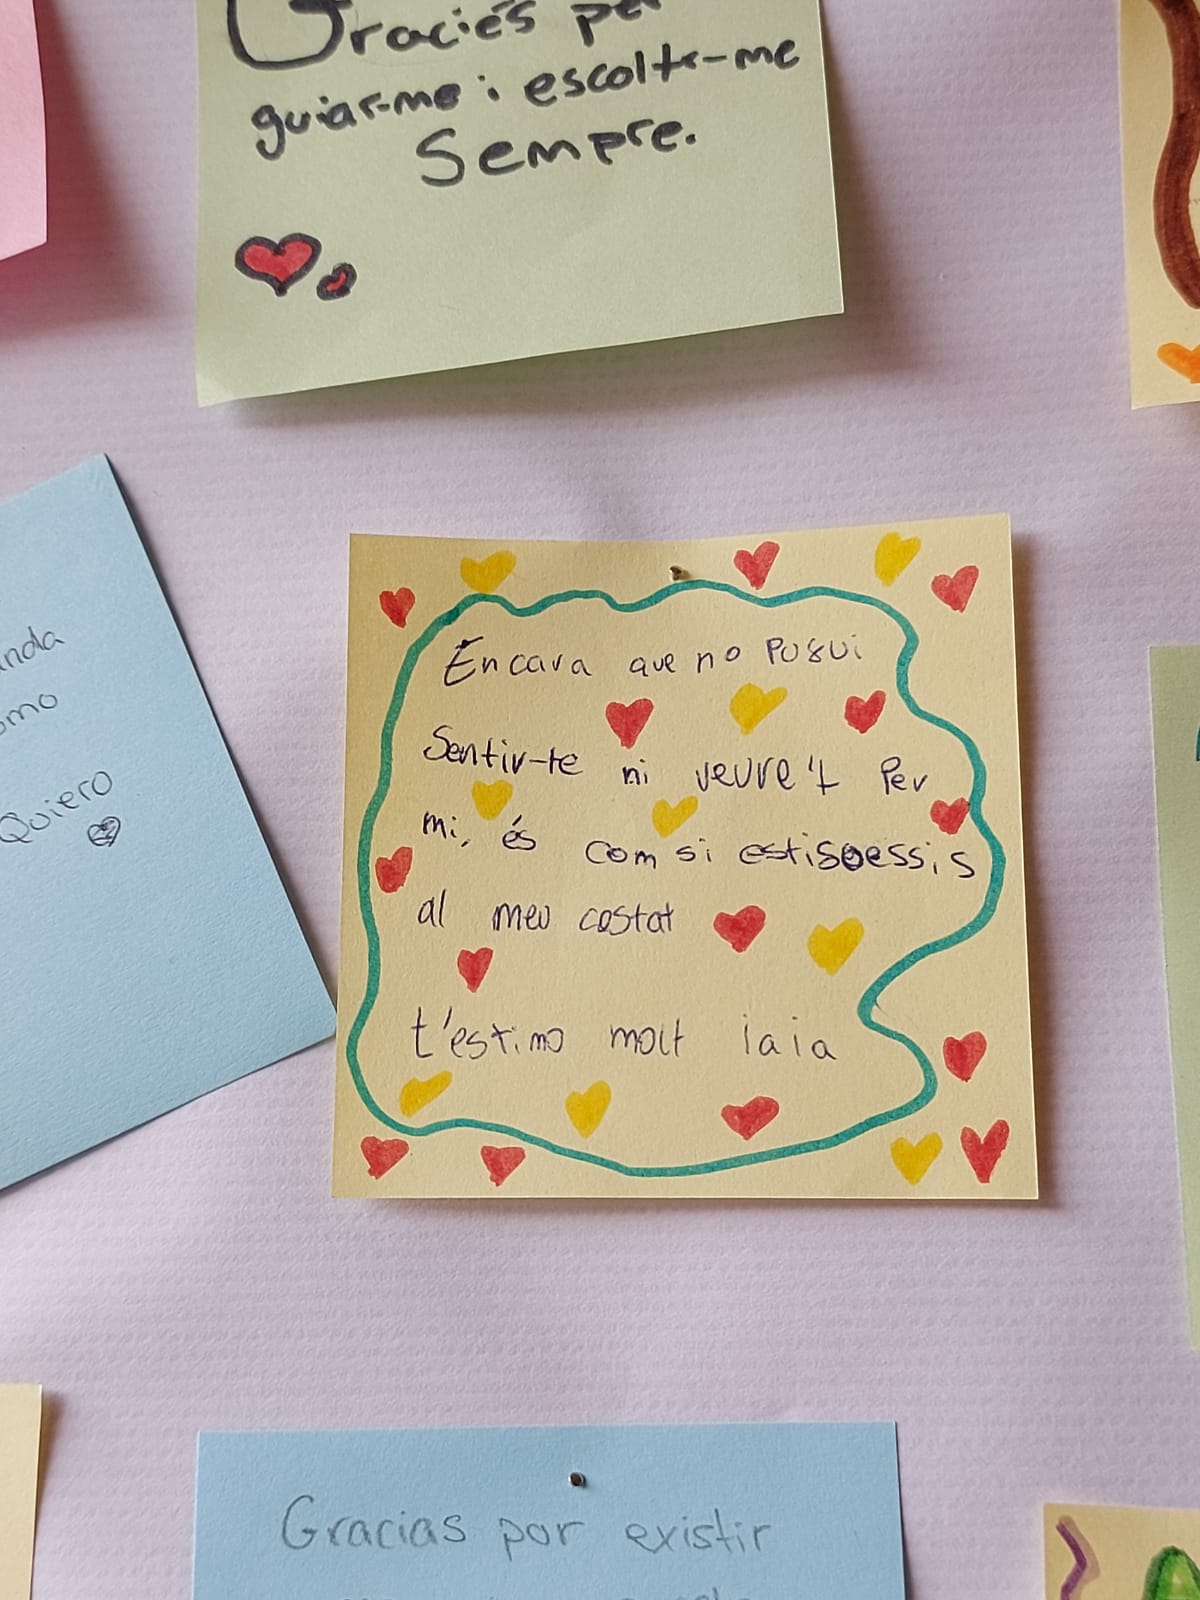 Gracies per
guiar-me i escoltr-me
Sempre.
Encara que no pugui
Sentir-te ni veure't Per
mi, és com si estiguessis
al meu costat
t'estimo molt iaia
omo
Quiero
Gracias por existir